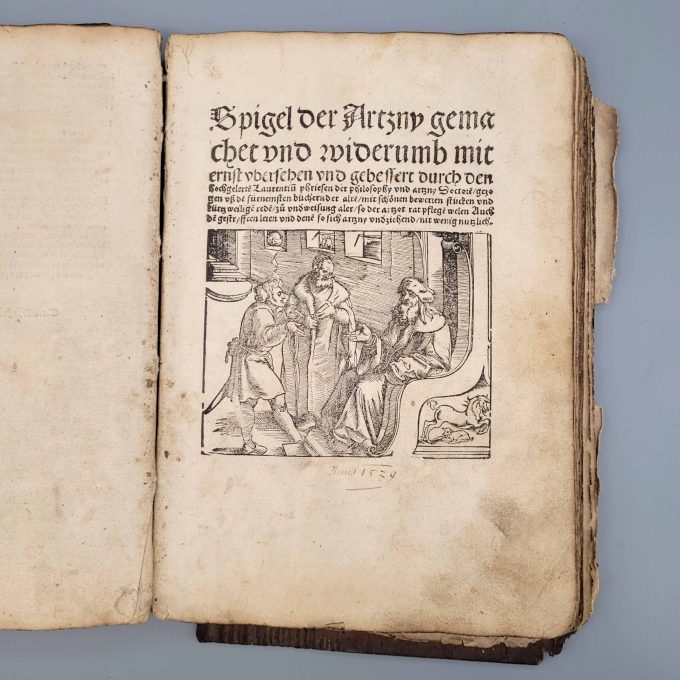 Spigel der Artzny gema
chet vnd widerumb mit
ernst vbersehen vnd gebessert durch den
hochgelertē Laurentiū phriesen der philosophy vnd artzny Doctorē/gezo
gen vß dē fürnemsten büchern der altē/mit schönen bewerten stucken vnd
kurtzweiligē redē/zů vndweisung aler/so der artzot rat pflegē welen Auch
dē gestr/fften leien vnd denē so sich artzny vndziehend/nit wenig nutzlich.
Anno 1529